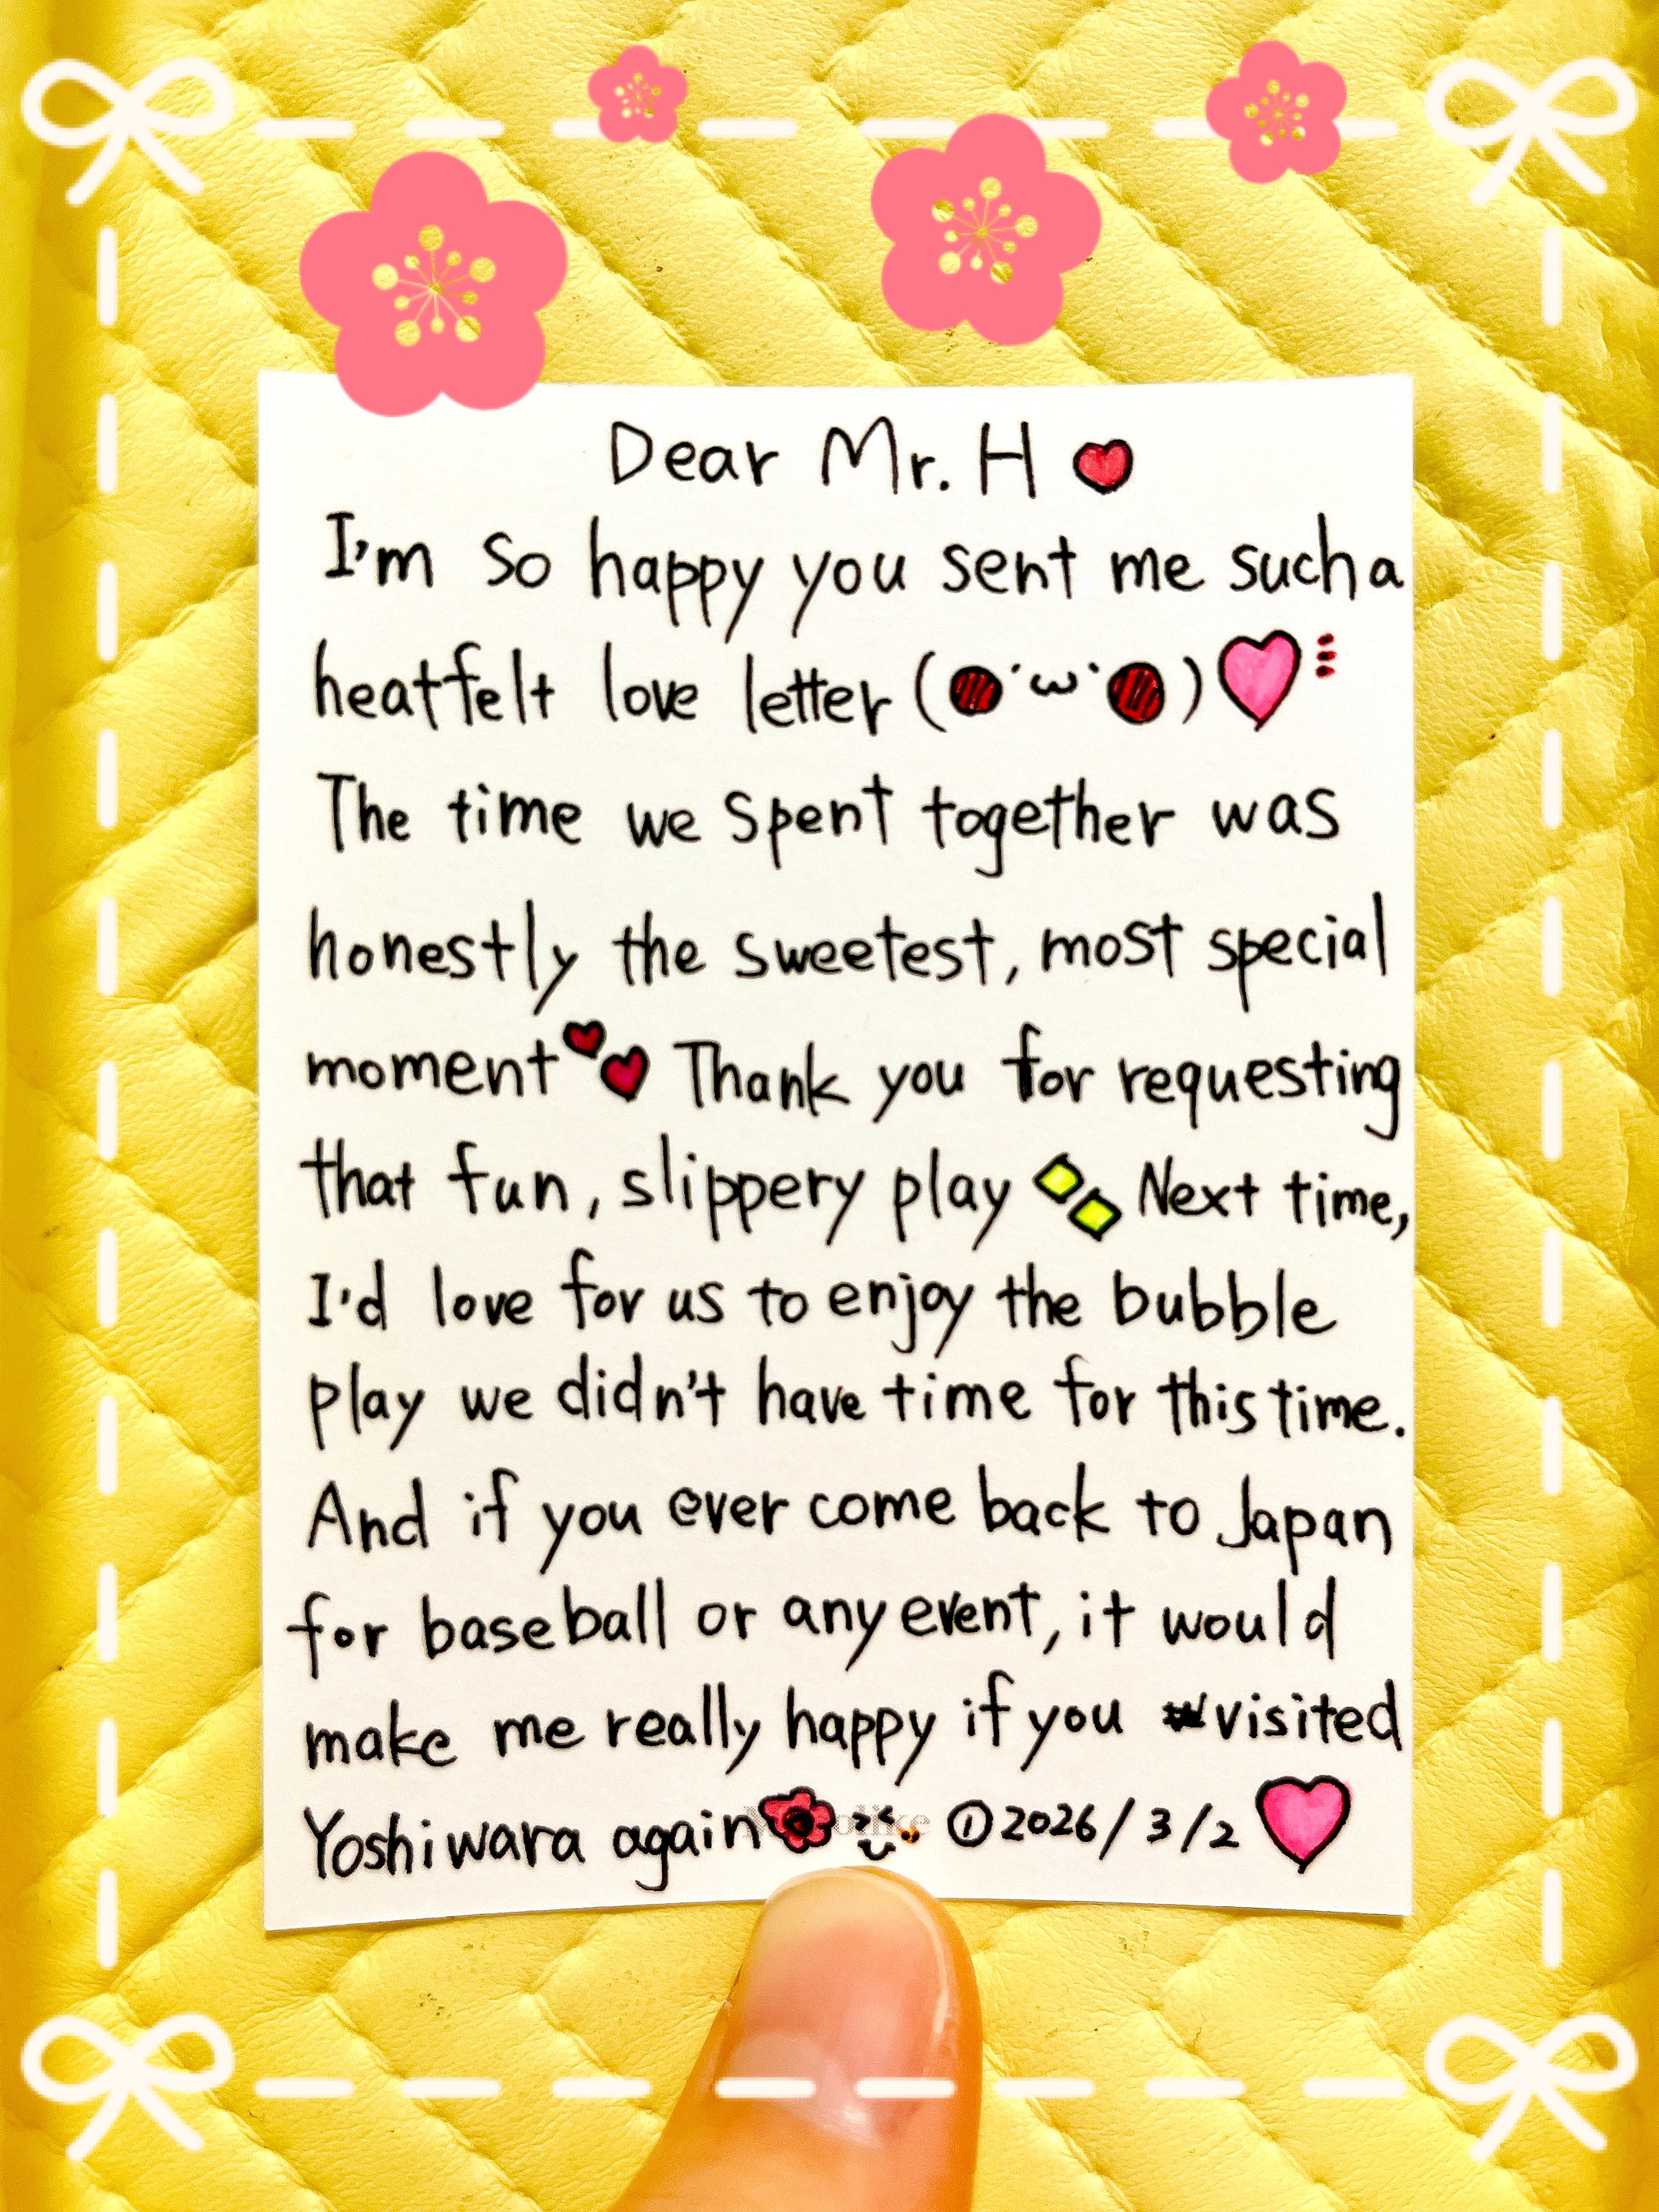 Dear Mr. H
I'm so happy you sent me such a
heatfelt love letter (●´ω`●)
The time we spent together was
honestly the sweetest, most special
moment Thank you for requesting
that fun, slippery play Next time,
I'd love for us to enjoy the bubble
play we didn't have time for this time.
And if you ever come back to Japan
for baseball or any event, it would
make me really happy if you visited
Yoshiwara again ①2026/3/2